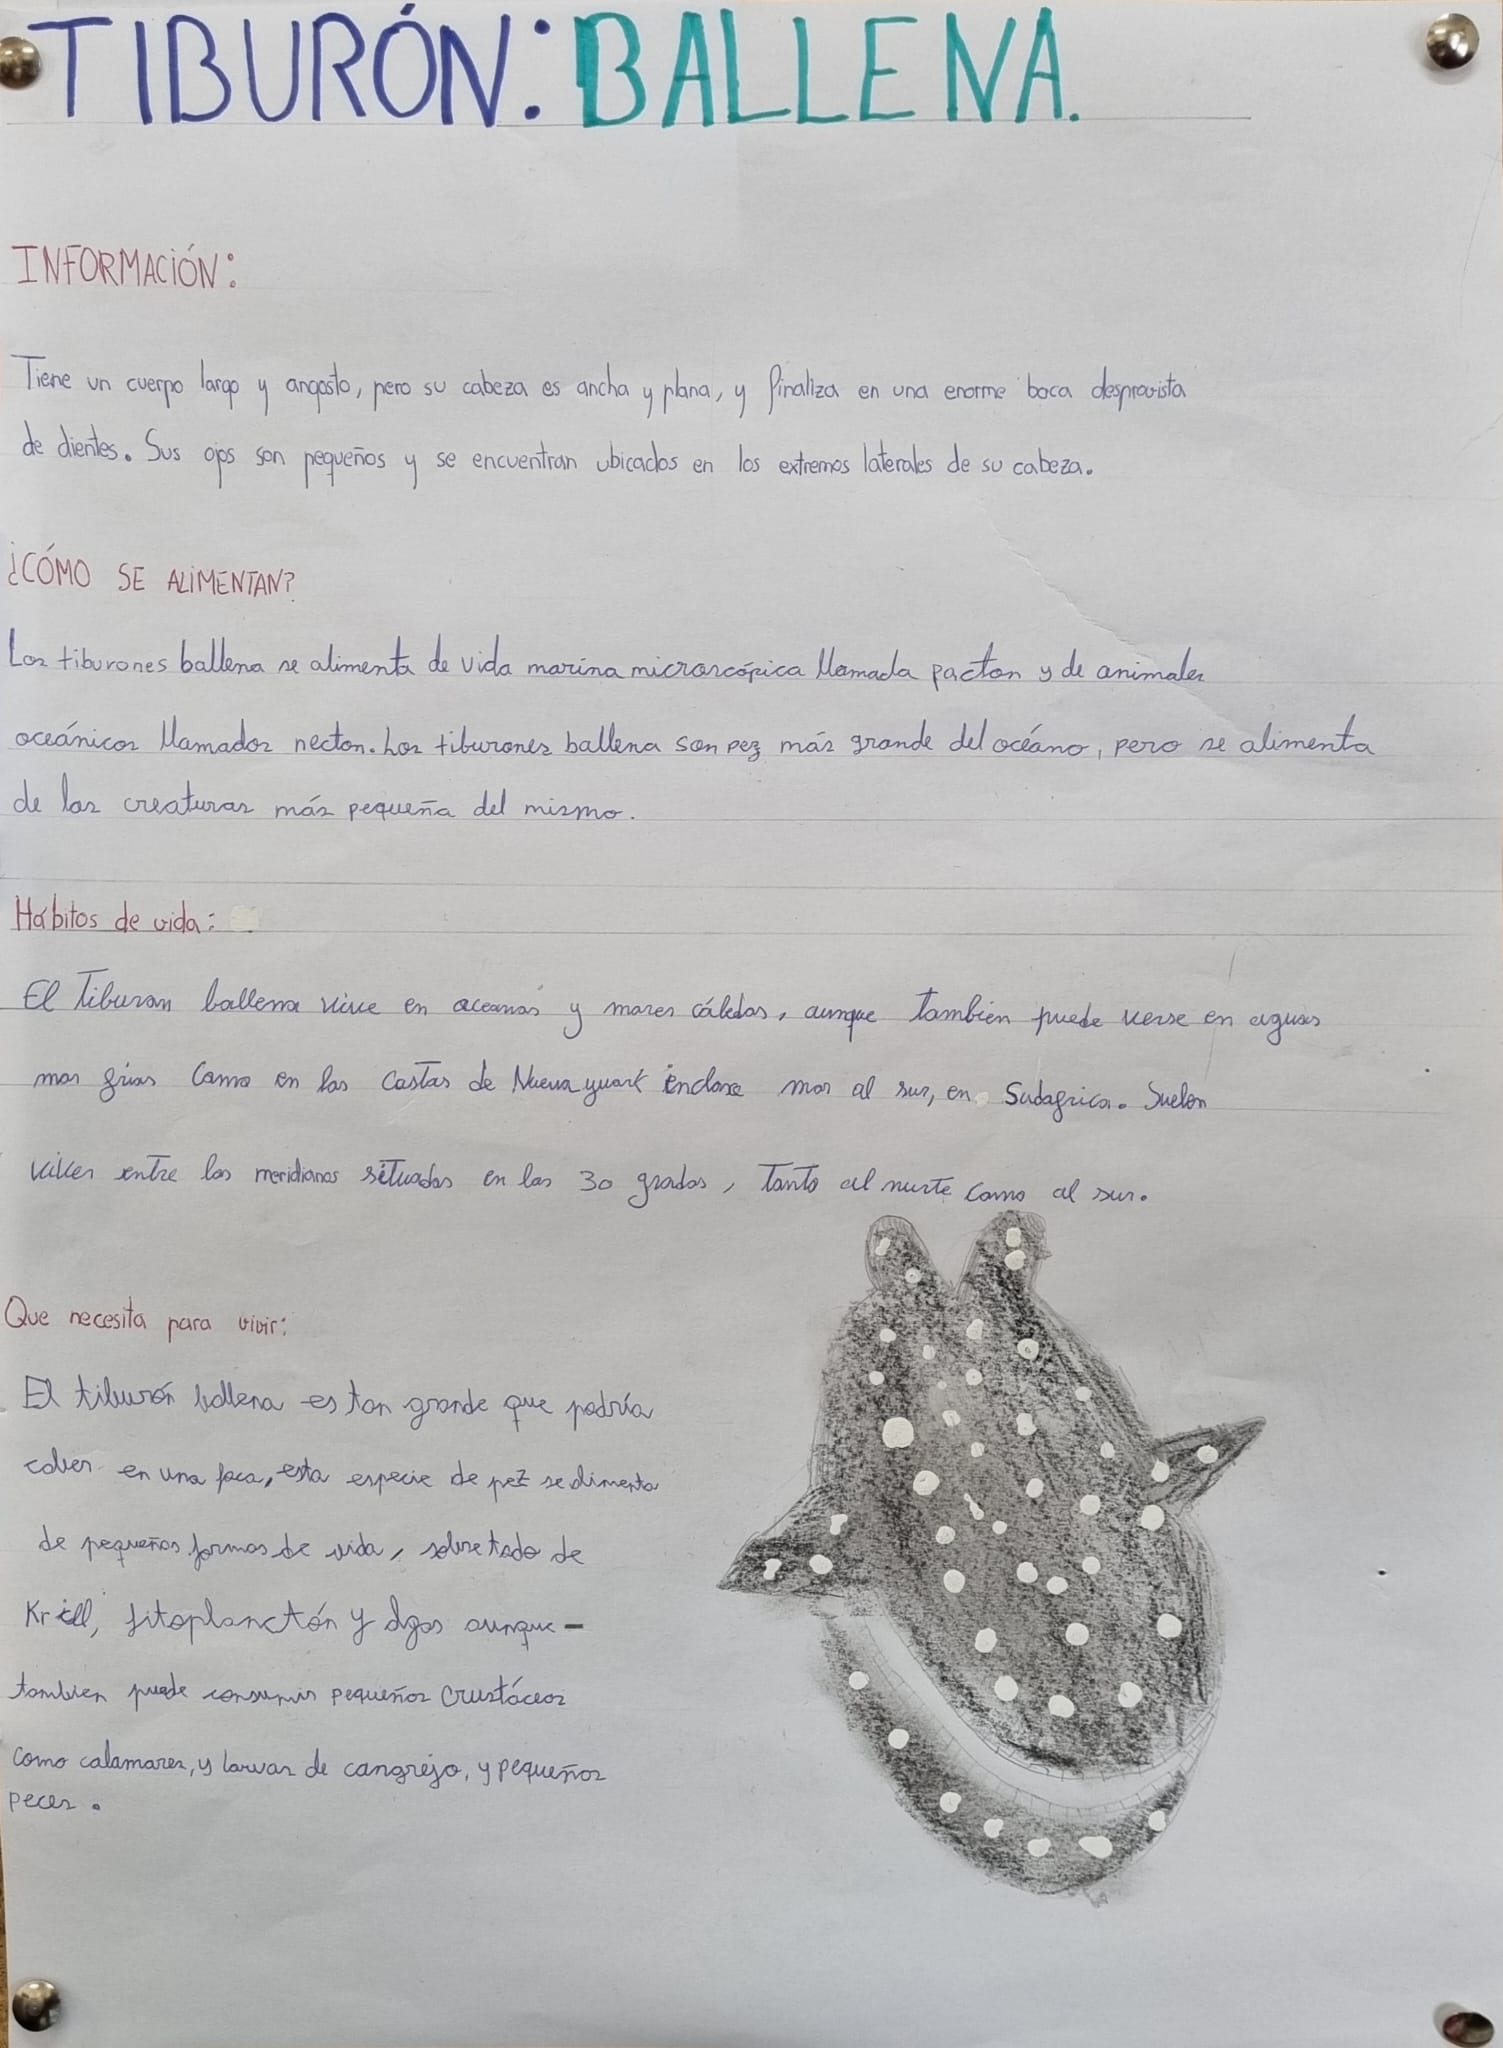 TIBURÓN: BALLENA.
INFORMACIÓN:
Tiene un cuerpo largo y angosto, pero su cabeza es ancha y plana, y finaliza en una enorme boca desprovista
de dientes. Sus ojos son pequeños y se encuentran ubicados en los extremos laterales de su cabeza.
¿CÓMO SE ALIMENTAN?
Los tiburones ballena se alimenta de vida marina microscópica llamada pacton y de animales
oceánicos llamados necton. Los tiburones ballena son pez más grande del océano, pero se alimenta
de las creaturas más pequeña del mismo.
Hábitos de vida:
El Tiburon ballena vive en oceanos y mares cáledos, aunque tambien puede verse en aguas
mas frias como en las costas de Nueva yuark incluse mas al sur, en Sudafrica. Suelen
viver entre los meridianos situados en los 30 grados, tanto al nurte como al sur.
Que necesita para vivir:
El tiburón ballena es tan grande que podría
caber en una foca, esta especie de pez se alimenta
de pequeñas formas de vida, sobre todo de
Krill, fitoplanctón y algas aunque-
tambien puede consumir pequeños crustáceos
como calamares, y larvas de cangrejo, y pequeños
peces.